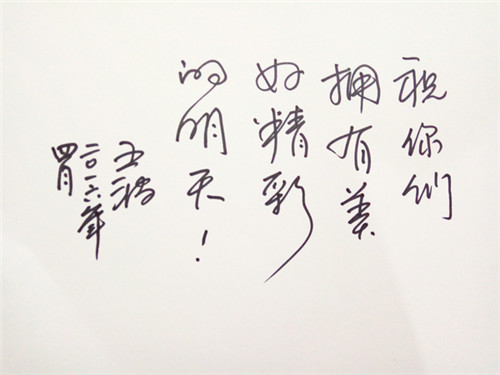 祝你们
拥有美
好精彩
的明天！
二〇一六年
四月